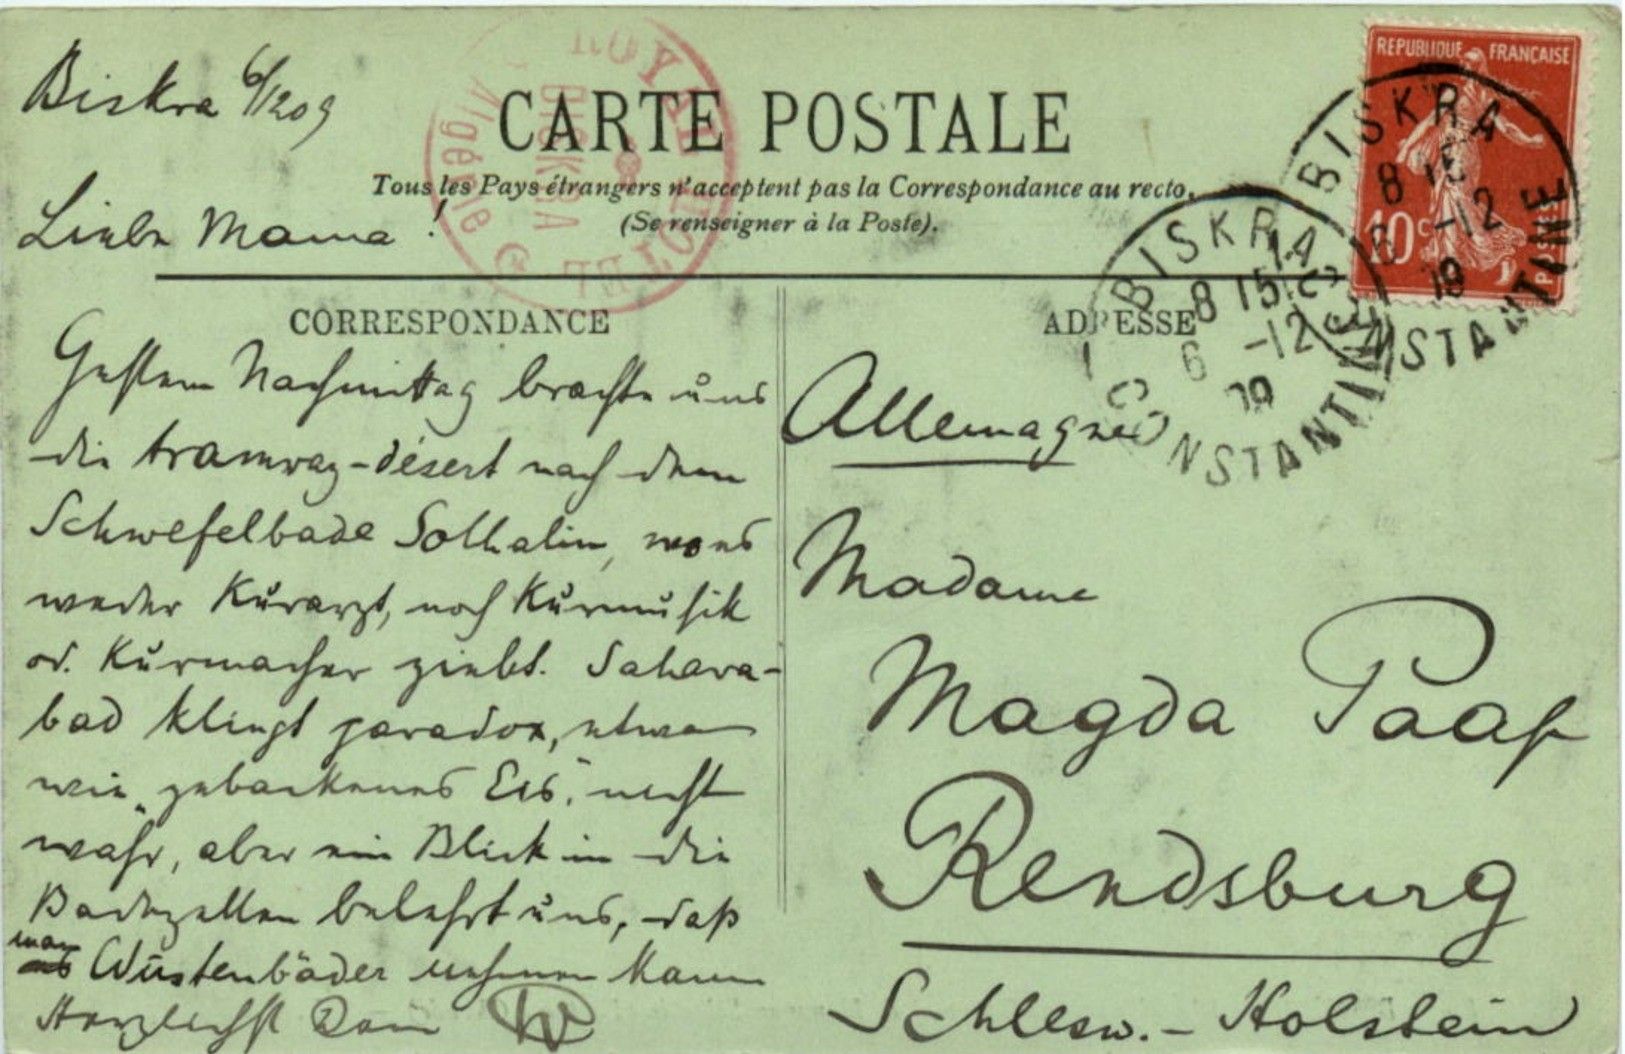 Biskra 6/12 09
ROYAL HOTEL
BISKRA
Algérie
CARTE POSTALE
Tous les Pays étrangers n'acceptent pas la Correspondance au recto.
(Se renseigner à la Poste).
REPUBLIQUE FRANÇAISE
10c
POSTES
BISKRA
8 15
6 -12
09
CONSTANTINE
BISKRA
8 15
6 -12
09
CONSTANTINE
Liebe Mama!
CORRESPONDANCE
Gestern Nachmittag brachte uns
die tramway-désert nach dem
Schwefelbade
weder Kurarzt, noch Kurmusik
od. Kurmacher giebt. Sahara-
bad klingt paradox, etwa
wie „gebackenes Eis", nicht
wahr, aber ein Blick in die
Badezellen belehrt uns, daß
man Wüstenbäder nehmen kann
Herzlichst Dein W
ADRESSE
Allemagne
Madame
Magda Paap
Rendsburg
Schlesw.-Holstein